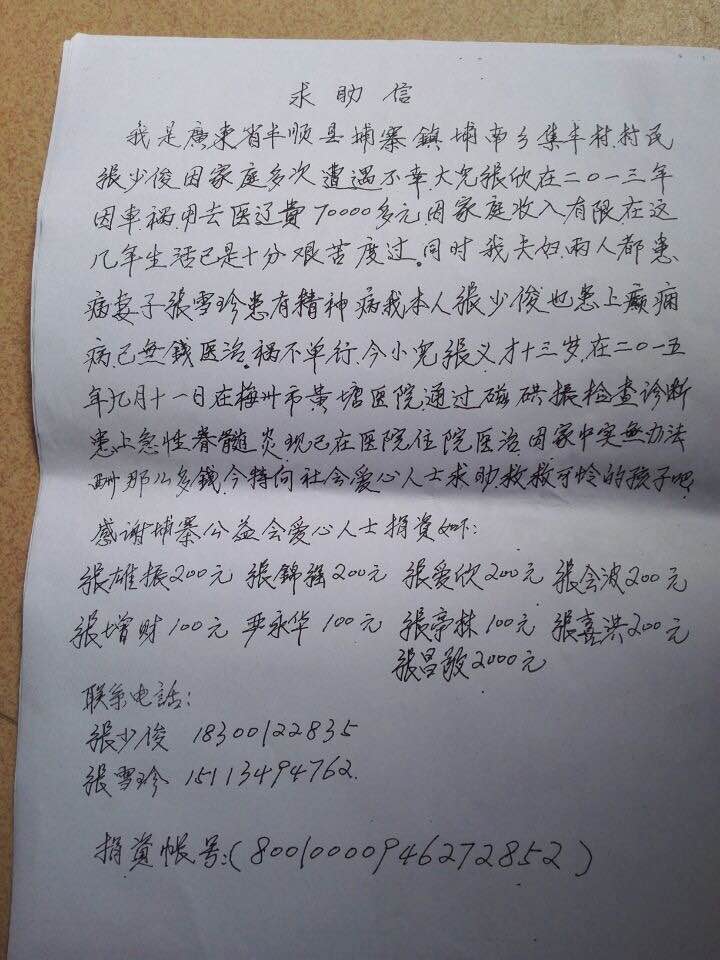 求助信
我是廣東省丰顺县埔寨鎮埔南乡集丰村村民
張少俊因家庭多次遭遇不幸大兒張欣在二〇一三年
因車祸用去医辽費70000多元因家庭收入有限在这
几年生活已是十分艰苦度过。同时我夫妇两人都患
病妻子張雪珍患有精神病我本人張少俊也患上癫痫
病已無錢医治。祸不单行今小兒張义才十三岁在二〇一五
年九月十一日在梅州市黄塘医院通过磁硔振检查诊断
患上急性脊髓炎现已在医院住院医治因家中实無办法
酬那么多錢今特向社会爱心人士求助救救可怜的孩子吧
感谢埔寨公益会爱心人士捐资如下:
張雄振200元 張錦强200元 張爱欣200元 張会波200元
張增财100元 严永华100元 張亭林100元 張喜洪200元
張昌敬2000元
联系电話:
張少俊 18300122835
張雪珍 15113494762.
捐資帐号:(80010000946272852)